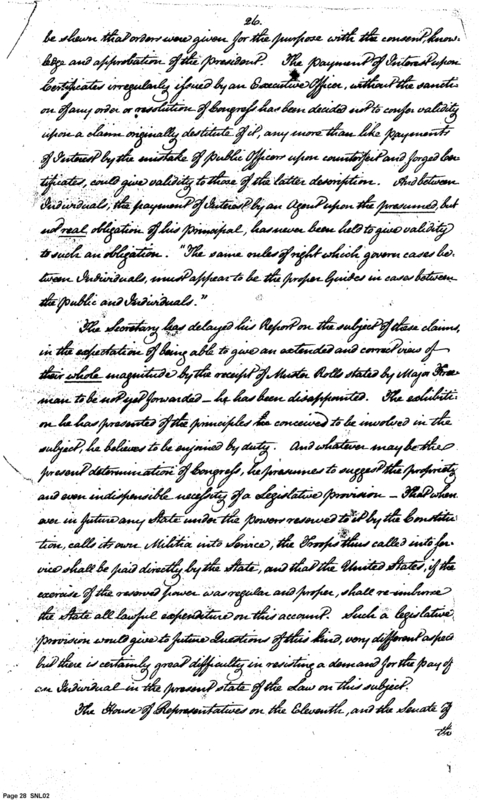 26.
be shewn that orders were given for the purpose with the consent, know
ledge and approbation of the president. The payment of Interest upon
Certificates irregularly issued by an Executive Officer, without the sancti
on of any order or resolution of Congress has been decided not to confer validity
upon a claim originally destitute of it, any more than like payments
of Interest by the mistake of public Officers upon counterfeit and forged Cer
tificates, could give validity to those of the latter description. And between
Individuals, the payment of Interest by an Agent upon the presumed, but
not real obligation of his principal, has never been held to give validity
to such an obligation. "The same rules of right which govern cases be.
tween Individuals, must appear to be the proper Guides in cases between
the public and Individuals."
The Secretary has delayed his Report on the subject of these claims,
in the expectation of being able to give an extended and correct view of
their whole magnitude by the receipt of Muster Rolls stated by Major Free
man to be not yet forwarded — he has been disappointed. The exhibiti
on he has presented of the principles he conceived to be involved in the
subject, he believes to be enjoined by duty. And whatever may be the
present determination of Congress, he presumes to suggest the propriety
and even indispensible necessity of a Legislative provision — That when
ever in future any State under the powers reserved to it by the Constitu
tion, calls its own Militia into Service, the Troops thus called into ser
vice shall be paid directly by the State, and that the United States, if the
exercise of the reserved power was regular and proper, shall re-imburse
the State all lawful expenditure on this account. Such a legislative
provision would give to future Questions of this kind, very different aspect
but there is certainly great difficulty in resisting a demand for the pay of
an Individual in the present state of the Law on this subject.
The House of Representatives on the Eleventh, and the Senate of
the
Page 28 SNL02